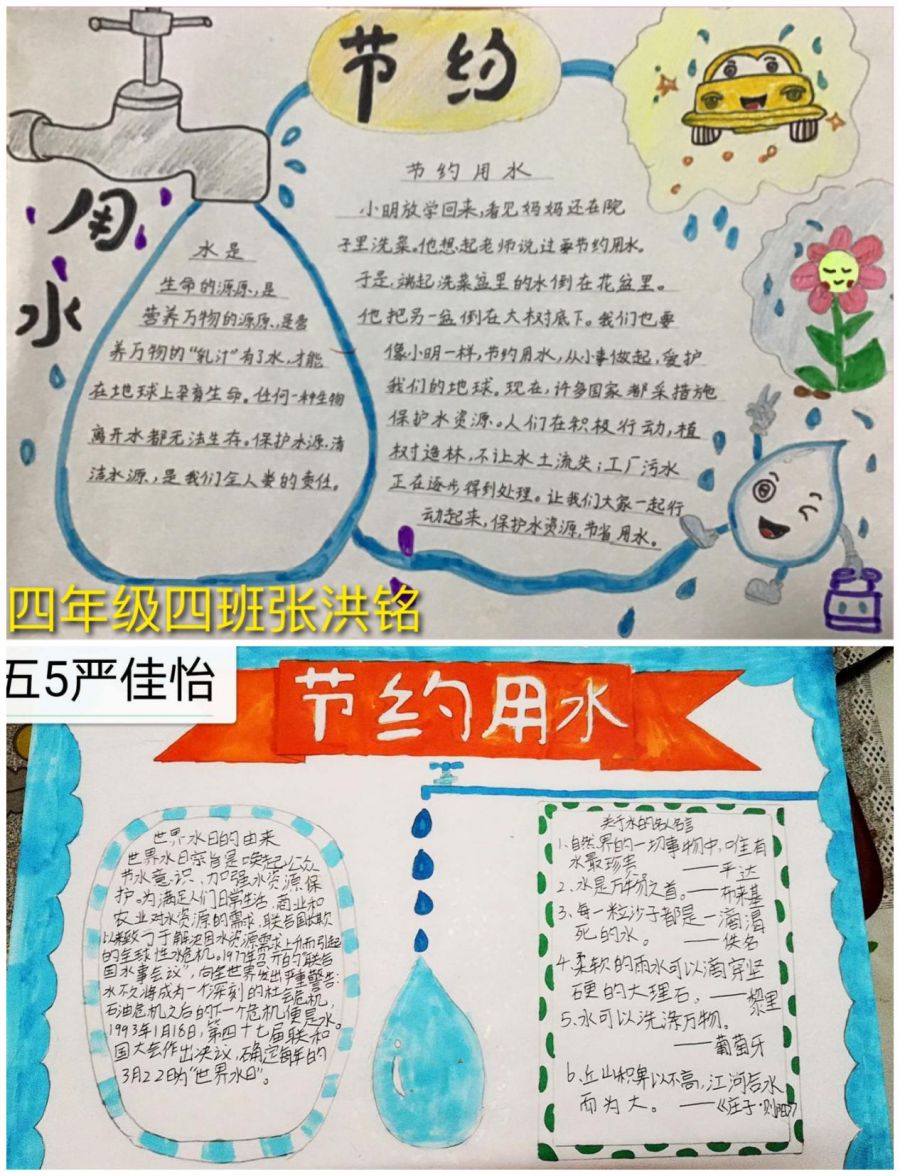 节约
用
水
水是
生命的源原,是
营养万物的源原,是营
养万物的“乳汁”有了水,才能
在地球上孕育生命。任何一种生物
离开水都无法生存。保护水源,清
洁水源,是我们全人类的责任。
节约用水
小明放学回来,看见妈妈还在院
子里洗菜。他想起老师说过要节约用水。
于是,端起洗菜盆里的水倒在花盆里。
他把另一盆倒在大树底下。我们也要
像小明一样,节约用水,从小事做起,爱护
我们的地球。现在,许多国家都采措施
保护水资源。人们在积极行动,植
树造林,不让水土流失;工厂污水
正在逐步得到处理。让我们大家一起行
动起来,保护水资源,节省用水。
四年级四班张洪铭
五5严佳怡
节约用水
世界水日的由来
世界水日宗旨是唤起公众
节水意识、加强水资源保
护。为满足人们日常生活,商业和
农业对水资源的需求,联合国长期
以来致力于解决因水资源需求上升而引起
的全球性水危机。1977年召开的“联合
国水事会议”,向全世界发出严重警告:
水不久将成为一个深刻的社会危机,
石油危机之后的下一个危机便是水。
1993年1月18日,第四十七届联和
国大会作出决议,确定每年的
3月22日为“世界水日”。
关于水的名人名言
1.自然界的一切事物中,唯有
水最珍贵。——平达
2、水是万物之首。——布来基
3、每一粒沙子都是一滴渴
死的水。——佚名
4.柔软的雨水可以滴穿坚
硬的大理石。——黎里
5.水可以洗涤万物。
——葡萄牙
6.丘山积卑以不高,江河合水
而为大。——《庄子·则阳》